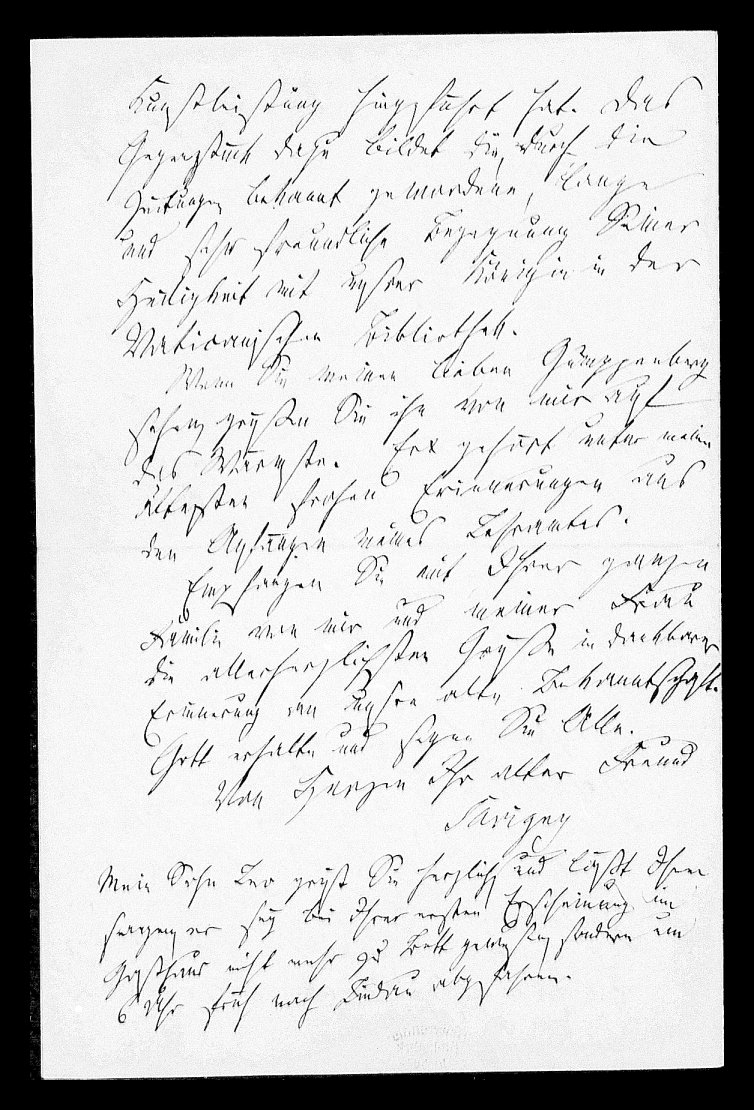 Kunstleistung hingeführt hat. Das
Gegenstück dazu bildet die, durch die
Zeitungen bekannt gewordene, lange
und sehr freundliche Begegnung Seiner
Heiligkeit mit unsrer Königin in der
Vaticanischen Bibliothek.
Wenn Sie meinen lieben Gumppenberg
sehen, grüßen Sie ihn von mir auf
das Wärmste. Er gehört unter meine
ältesten frohen Erinnerungen aus
den Anfängen meines Lehramtes.
Empfangen Sie mit Ihrer ganzen
Familie von mir und meiner Frau
die allerherzlichsten Grüße in dankbarer
Erinnerung an unsre alte Bekanntschaft.
Gott erhalte und segne Sie Alle.
Von Herzen Ihr alter Freund
Savigny
Mein Sohn Leo grüßt Sie herzlich und läßt Ihnen
sagen, er sey bei Ihrer ersten Erscheinung im
Gasthaus nicht mehr zu Bett gewesen, sondern um
6 Uhr früh nach Lindau abgefahren.